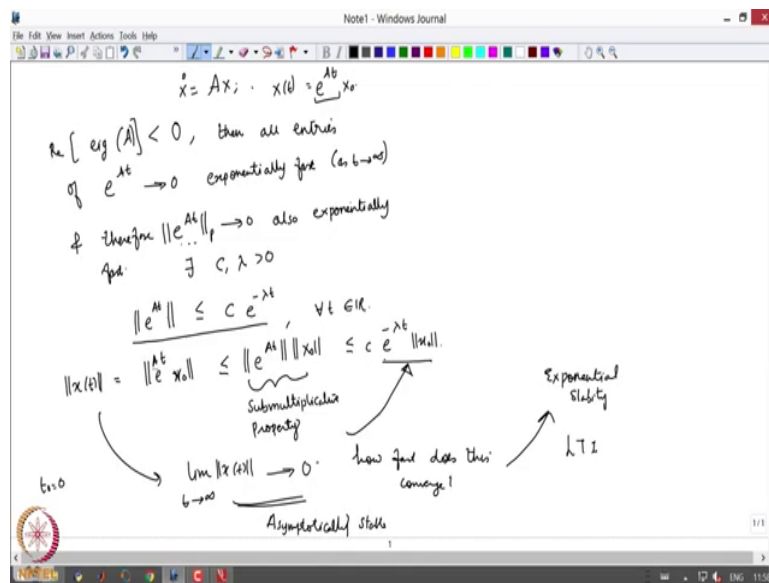 Note1 - Windows Journal
File Edit View Insert Actions Tools Help
ẋ = Ax; . x(t) = e^{At} x₀.
Re [ eig (A)] < 0, then all entries
of e^{At} → 0 exponentially fast (as t→∞)
& therefore ||e^{At}||_p → 0 also exponentially
fast. ∃ c, λ > 0
||e^{At}|| ≤ c e^{-λt}, ∀ t ∈ ℝ.
||x(t)|| = ||e^{At} x₀|| ≤ ||e^{At}|| ||x₀|| ≤ c e^{-λt} ||x₀||.
Submultiplicative
Property
Exponential
Stability
LTI
t₀=0
lim ||x(t)|| → 0.
t→∞
how fast does this
converge!
Asymptotically stable
1
1/1
NPTEL
ENG 11:58